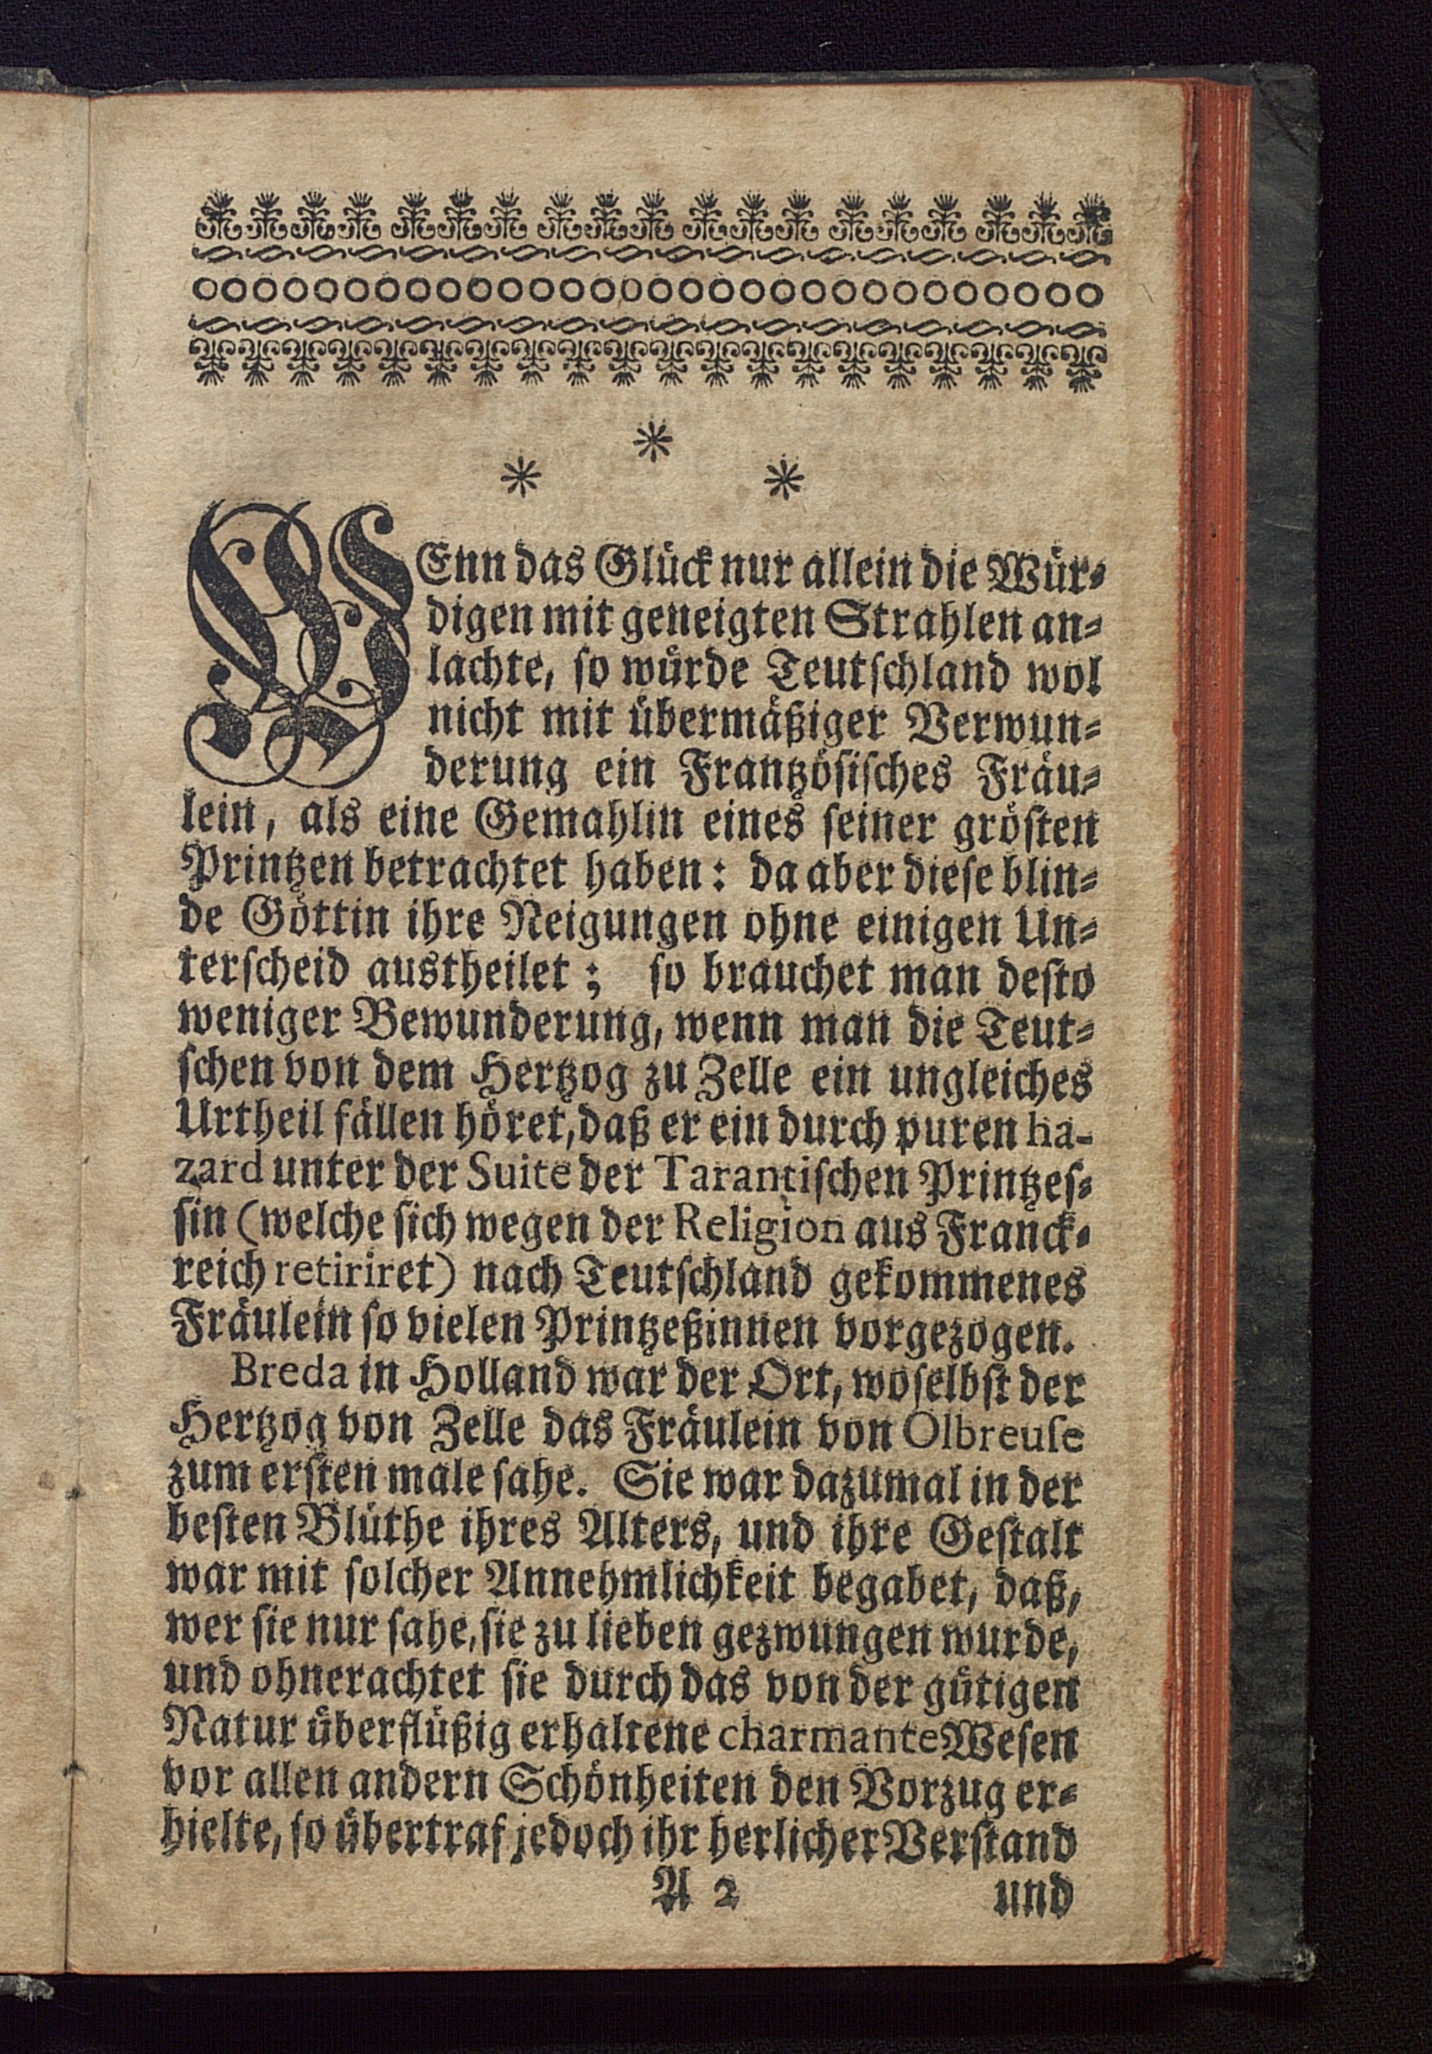 WEnn das Glück nur allein die Wür-
digen mit geneigten Strahlen an-
lachte, so würde Teutschland wol
nicht mit übermäßiger Verwun-
derung ein Frantzösisches Fräu-
lein, als eine Gemahlin eines seiner grösten
Printzen betrachtet haben: da aber diese blin-
de Göttin ihre Neigungen ohne einigen Un-
terscheid austheilet; so brauchet man desto
weniger Bewunderung, wenn man die Teut-
schen von dem Hertzog zu Zelle ein ungleiches
Urtheil fällen höret, daß er ein durch puren ha-
zard unter der Suite der Tarantischen Printzes-
sin (welche sich wegen der Religion aus Franck-
reich retiriret) nach Teutschland gekommenes
Fräulein so vielen Printzeßinnen vorgezogen.
Breda in Holland war der Ort, woselbst der
Hertzog von Zelle das Fräulein von Olbreuse
zum ersten male sahe. Sie war dazumal in der
besten Blüthe ihres Alters, und ihre Gestalt
war mit solcher Annehmlichkeit begabet, daß,
wer sie nur sahe, sie zu lieben gezwungen wurde,
und ohnerachtet sie durch das von der gütigen
Natur überflüßig erhaltene charmante Wesen
vor allen andern Schönheiten den Vorzug er-
hielte, so übertraf jedoch ihr herlicher Verstand
A 2 und